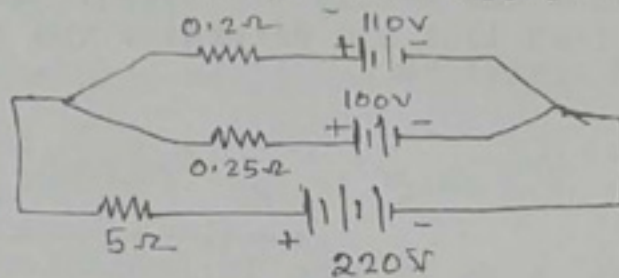 0.2Ω 110V
+ -
100V
+ -
0.25Ω
5Ω + -
220V